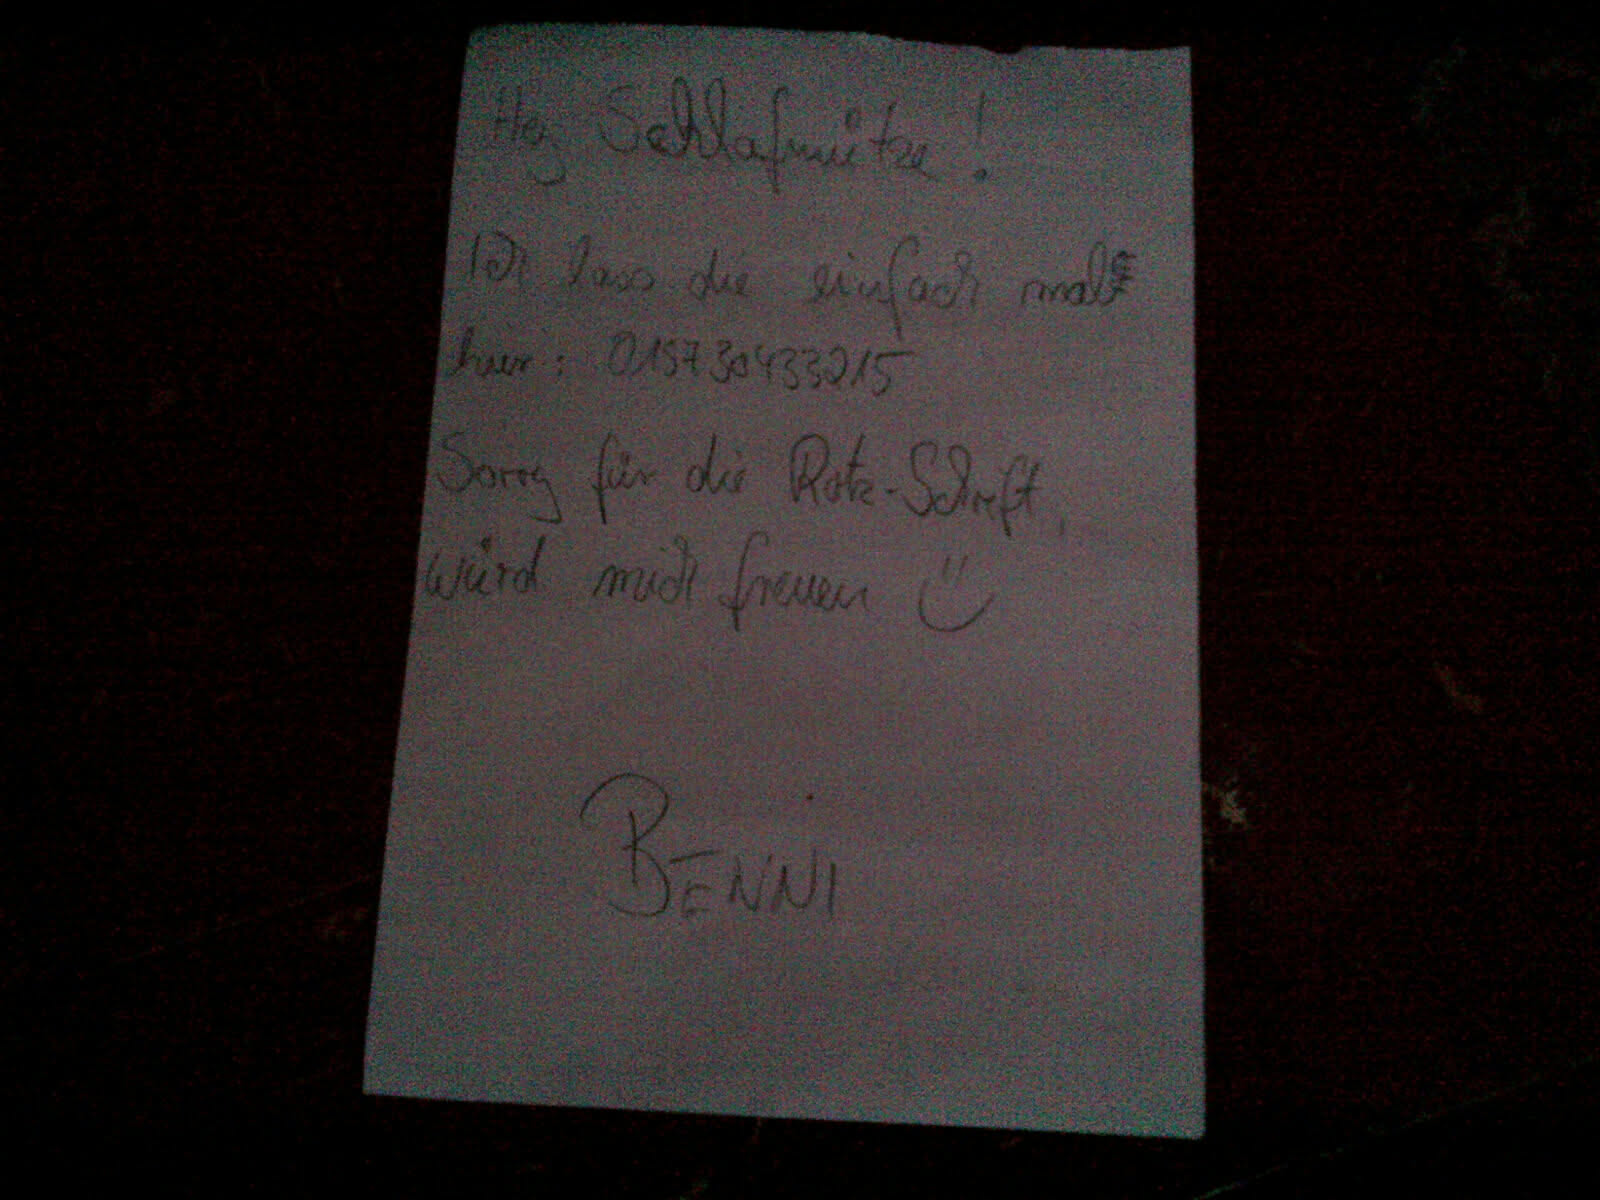 Hey Schlafmütze!
Ich lass die einfach mal
hier: 015730433215
Sorry für die Rotz-Schrift,
würd mich freuen
BENNI